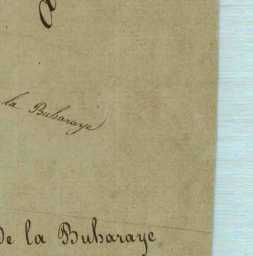 la Buharaye
de la Buharaye